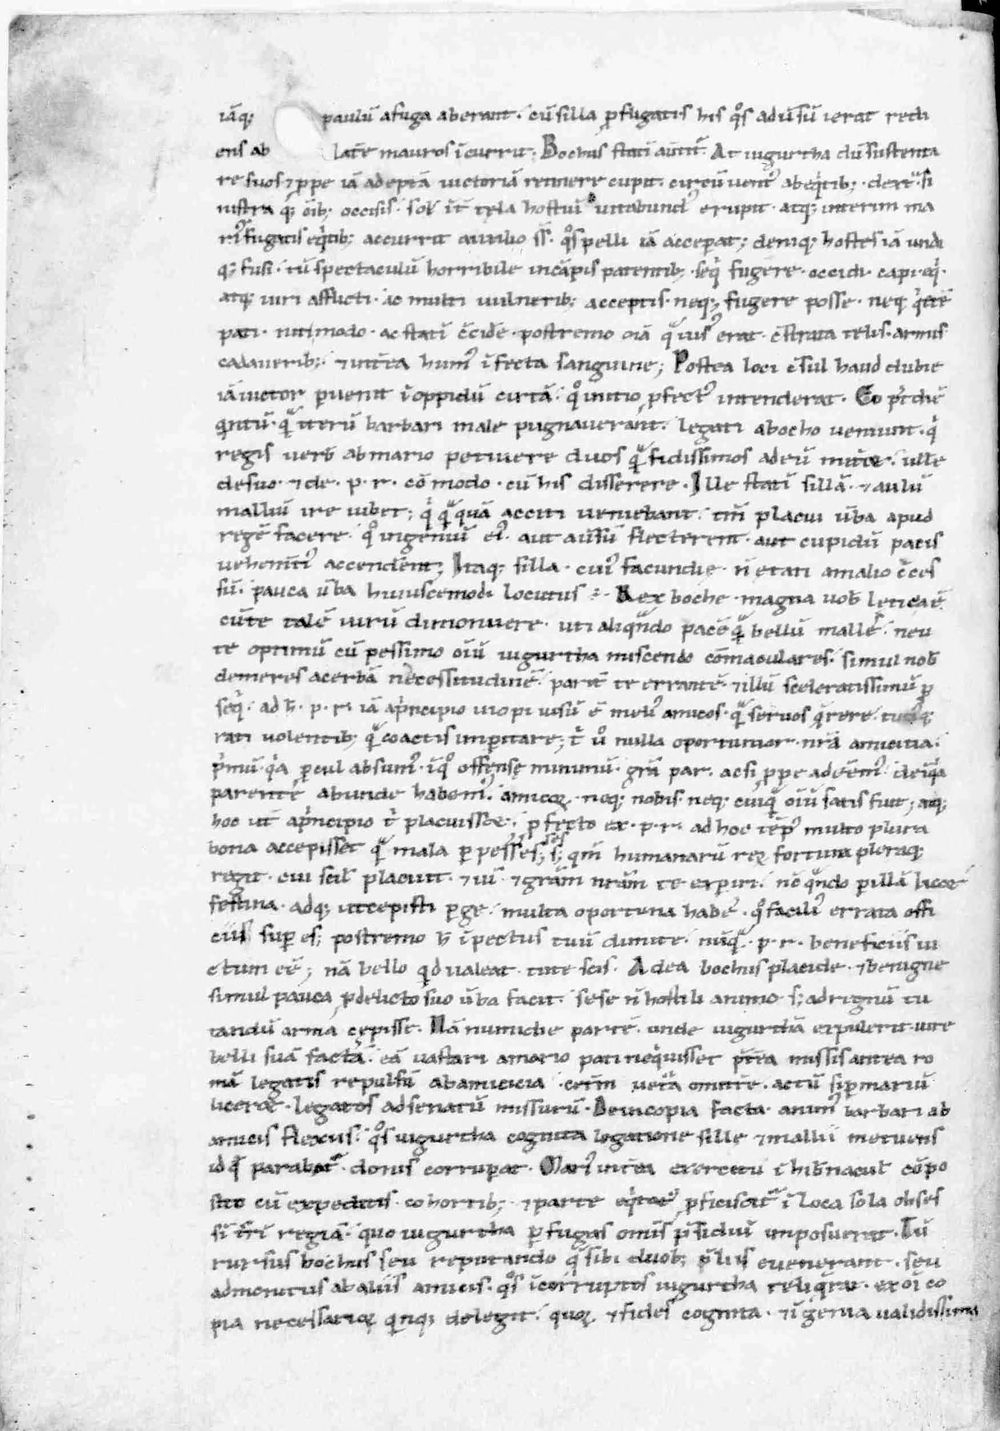 iāq; paulū afuga aberant. cū silla ꝑfugatis his qͦs adūsū ierat redi
ens ab latē mauros īcurrit; Bochus statī auertit᷑. At iugurtha dū sustenta
re suos ⁊ ꝓpe iā adeptā uictoriā retinere cupit. circūuent᷒ abeqͥtib; dext᷑a si
nistra q; oīb; occisis. sol᷒ īt᷑ tela hostiū uitabund᷒ erupit. atq; interim ma
ri᷒ fugatis eqͥtib; accurrit auxilio ss̄. qͦs pelli iā acceperat; deniq; hostes iā undi
q; fusi. tū spectaculū horribile incāpis patentib; seqͥ fugere. occidi. capi. eqͥ.
atq; uiri afflicti. ac multi uulnerib; acceptis. neq; fugere posse. neq; qͥetē
pati. nitimodo. ac statī c̄cidē. postremo oīa qͣ uis᷒ erat. c̄strata telis. armis
cadauerib; ⁊ int᷑ea hum᷒ īfecta sanguine; Postea loci c̄sul haud dubie
iā uictor ꝑuenit ī oppidū cirtā. qͦ initio ꝓfect᷒ intenderat. Eo pͥ diē
qͥntū. qͣ iterū barbari male pugnauerant. legati abocho ueniunt. qͥ
regis uerb̄ abmario petiuere duos qͣ fidissimos adeū mit᷑et. uelle
desuo. ⁊ de. p. r. cōmodo. cū his disserere. Ille statī sillā. ⁊ aulū
malliū ire iubet; qͥ qͣquā acciti ueniebant. tm̄ placui ūba apud
regē facere. qͦ ingeniū ei᷒. aut aūsū flecterent. aut cupidū pacis
uehem̄ti᷒ accenderent; Itaq; silla. cui᷒ facundie. n̄ etati amalio c̄ces
sū. pauca ūba huiuscemodi locutus. Rex boche. magna nob̄ leticia ē.
cūte talē uirū diimonuere. uti aliqͣndo pacē qͣ bellū malles. neu
te optimū cū pessimo oīū iugurtha miscendo cōmaculares. simul nob̄
demeres acerbā necessitudinē. parit᷑ te errantē. ⁊ illū sceleratissimū ꝑ
seqͥ. ad h̄. p. r. iā apͥncipio inopi uisū ē meli᷒ amicos. qͣ seruos qͣrere. tuti᷒q;
rati uolentib; qͣ coactis imperitare; tͥ uͦ nulla oportunior nr̄a amicitia.
pͥmū. qͥa ꝓcul absum᷒. ī qͦ offense minimū. gr̄a par. acsi ꝓpe adeēm᷒. deīqͣ
parentē abunde habem᷒. amicoꝝ. neq; nobis. neq; cuiqͣ oīū satis fuit; atq;
hoc ut̄ apͥncipio tͥ placuisset. ꝓfecto ex. p. r. ad hoc tēp᷒ multo plura
bona accepisses qͣ mala ꝑpessus eēs; s; qm̄ humanarū reꝝ fortuna pleraq;
regit. cui scil̄ placuit. ⁊ uī. ⁊ grām nrām te expiri. nc̄ qͣndo ꝑillā licet
festina. adq; utcepisti ꝑge. multa oportuna habes. qͦ facili᷒ errata offi
ciis superes; postremo h̄ īpectus tuū dimitte. nūqͣ. p. r. beneficiis ui
ctum eē; nā bello qͥd ualeat. tute scis. Adea bochus placide. ⁊ benigne
simul pauca ꝓdelicto suo ūba facit. sese n̄ hostili animo s; adregnū tu
tandū arma cepisse. Nā numidie partē. unde iugurthā expulerit. iure
belli suā factā. eā uastari amario pati neqͥuisset p̄t᷑ea missis antea ro
mā legatis repulsū abamicicia. cet᷑m uet᷑a omitt᷑e. actū siꝑ mariū
liceret. legatos adsenatū missurū. Deincopia facta. anim᷒ barbari ab
amicis flexus. qͦs iugurtha cognita legatione sille ⁊ mallii metuens
id qͦ parabat᷑. donis corruperat. Mari᷒ int᷑ea exercitu ī hib᷑naculis cōpo
sito cū expeditis. cohortib; ⁊ parte eqͥtat᷒. ꝓficiscit᷑ ī loca sola obses
sū t᷑rī regiā. quo iugurtha ꝑfugas oms̄ pͥsidiū imposuerat. Tū
rur sus bochus seu reputando qͣ sibi duob; p̄liis euenerant. seu
admonitus abaliis amicis. qͦs īcorruptos iugurtha reliqͥrat. ex oī co
pia necessarioꝝ qͥnq; delegit. quoꝝ ⁊ fides cognita. ⁊ īgenia ualidissima